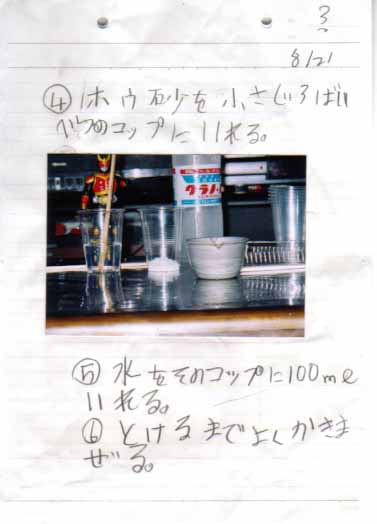 3
8/21
④ホウ砂を小さじ3ばい
べつのコップに入れる。
⑤水をそのコップに100ml
入れる。
⑥とけるまでよくかきま
ぜる。